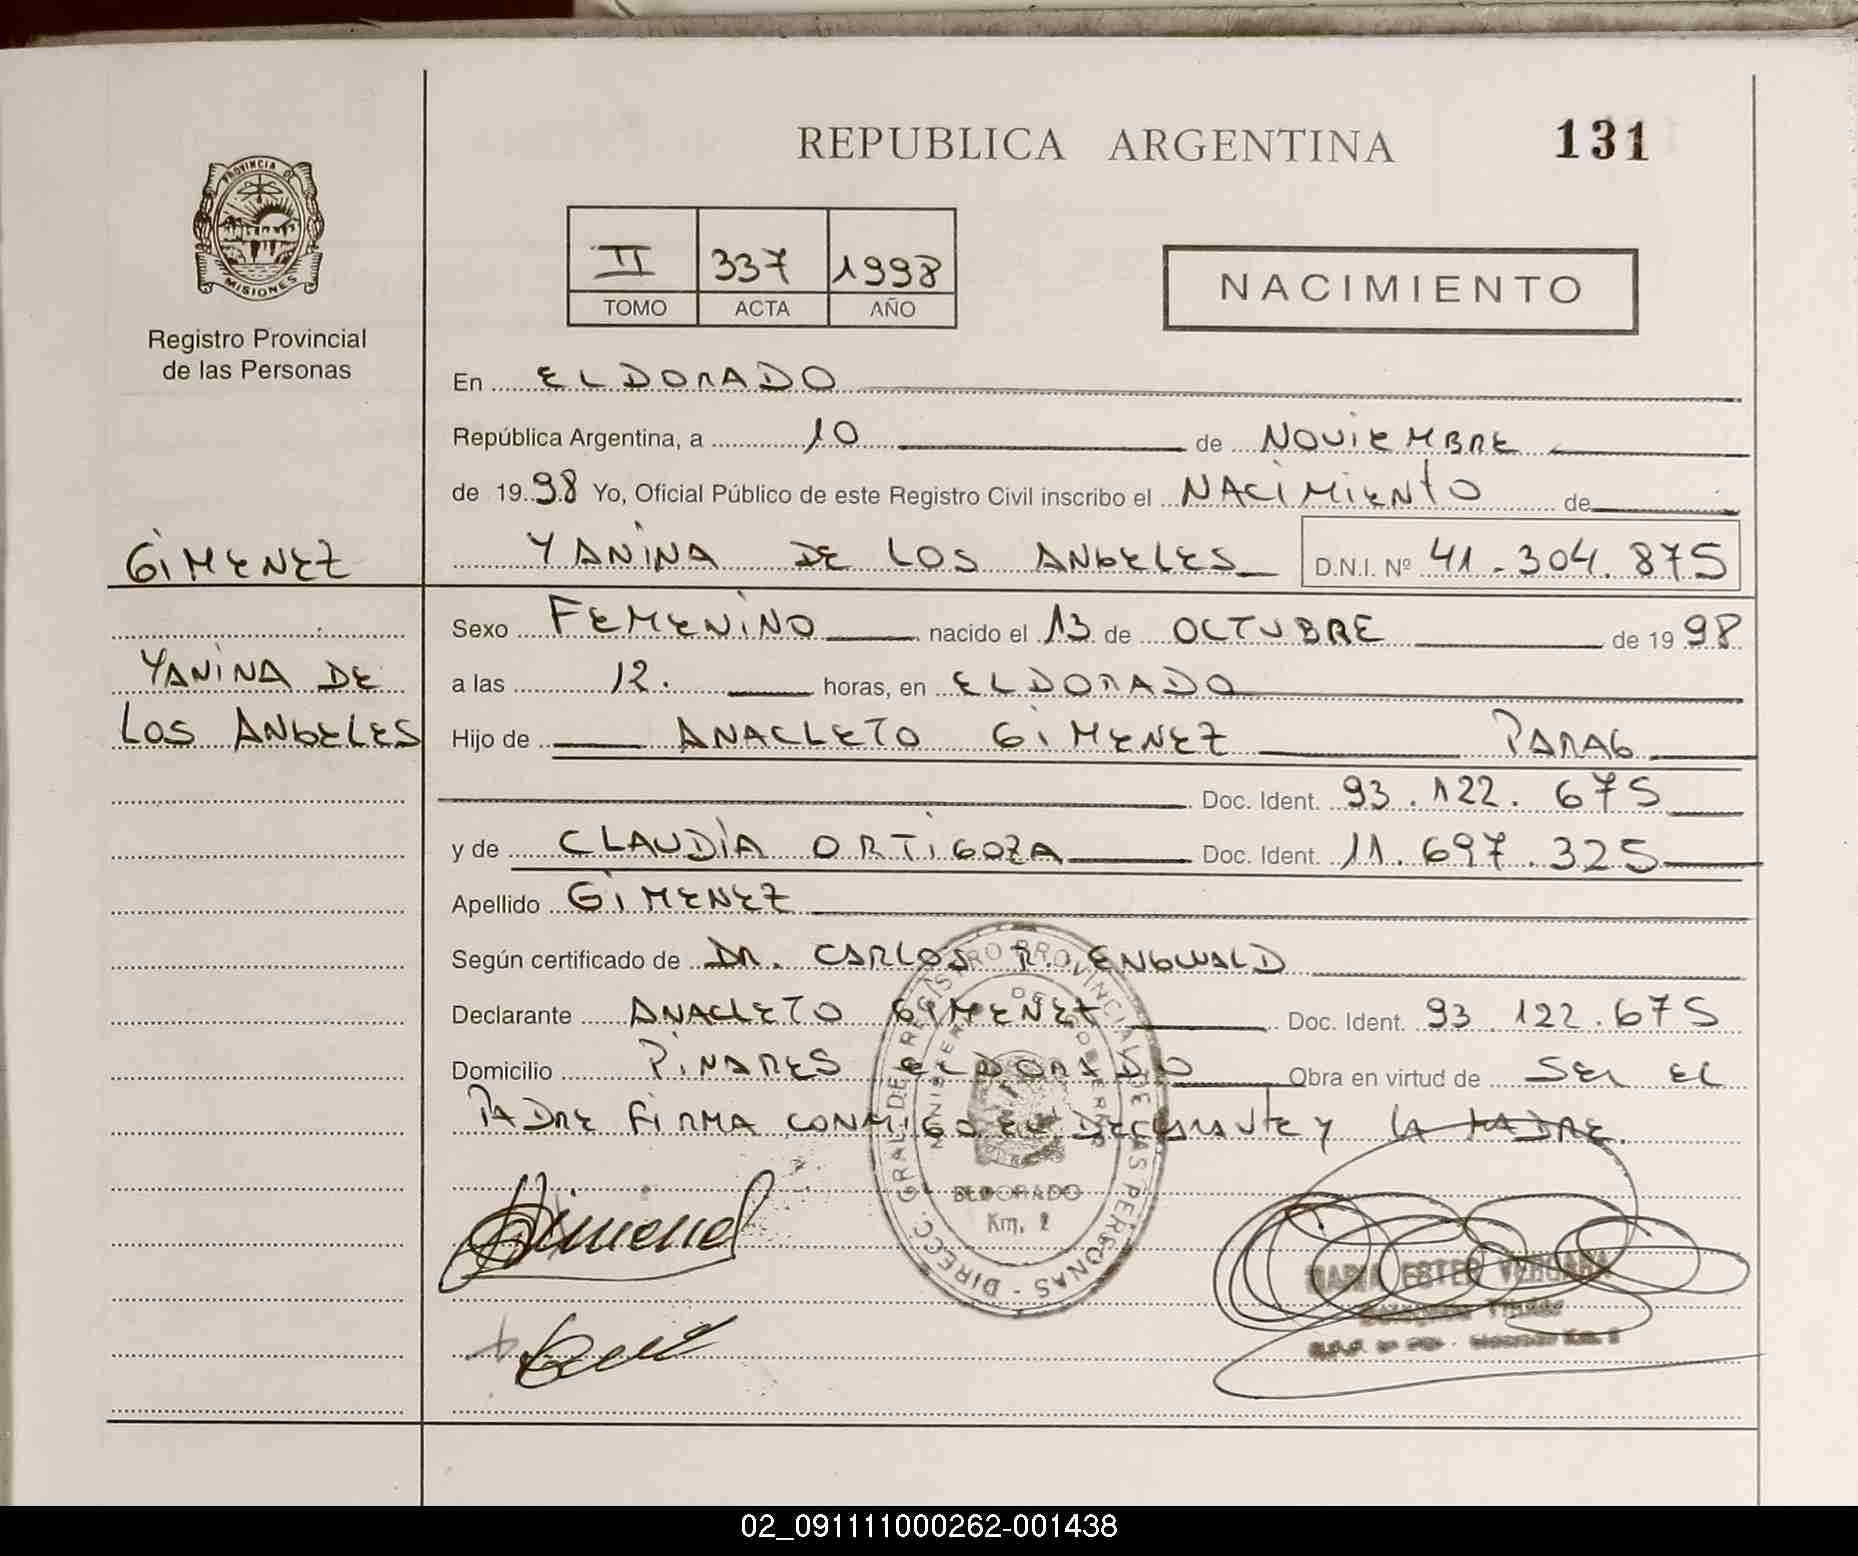 REPUBLICA ARGENTINA
131
PROVINCIA DE
MISIONES
Registro Provincial
de las Personas
II 337 1998
TOMO ACTA AÑO
NACIMIENTO
En ELDORADO
República Argentina, a 10 de NOVIEMBRE
de 1998 Yo, Oficial Público de este Registro Civil inscribo el NACIMIENTO de
GIMENEZ
YANINA DE LOS ANGELES D.N.I. Nº 41.304.875
Sexo FEMENINO nacido el 13 de OCTUBRE de 1998
YANINA DE
a las 12. horas, en ELDORADO
LOS ANGELES
Hijo de ANACLETO GIMENEZ PARAG
Doc. Ident. 93.122.675
y de CLAUDIA ORTIGOZA Doc. Ident. 11.697.325
Apellido GIMENEZ
Según certificado de DR. CARLOS R. ENGWALD
Declarante ANACLETO GIMENEZ Doc. Ident. 93.122.675
Domicilio PINARES ELDORADO Obra en virtud de SER EL
PADRE FIRMA CONMIGO EL DECLARANTE Y LA MADRE.
DIRECC. GRAL DE REGISTRO PROVINCIAL DE LAS PERSONAS
MINISTERIO DE GOBIERNO
ELDORADO
Km. 2
MARIA ESTER VERGARA
02_091111000262-001438